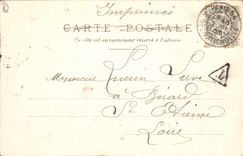 Imprimés
CARTE POSTALE
Ce côté est exclusivement réservé à l'adresse
Monsieur Lucien Serve
à Bérard
St Etienne
Loire